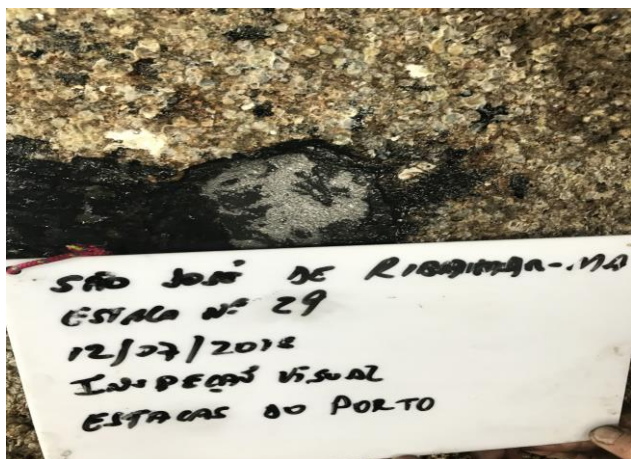 SÃO JOSÉ DE RIBAMAR-MA
ESTACA Nº 29
12/07/2018
INSPEÇÃO VISUAL
ESTACAS DO PORTO